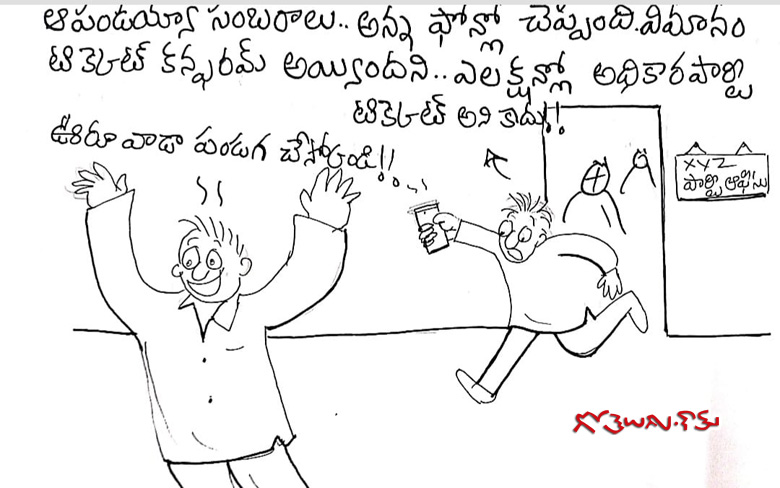 ఆపండయ్యా సంబరాలు.. అన్న ఫోన్లో చెప్పింది.విమానం
టికెట్ కన్ఫరమ్ అయ్యిందని..ఎలక్షన్లో అధికారపార్టి
టికెట్ అని కాదు!!
ఊరిరూ వాడా పండుగ చేసోకండి!!
XYZ
పార్టి ఆఫీసు